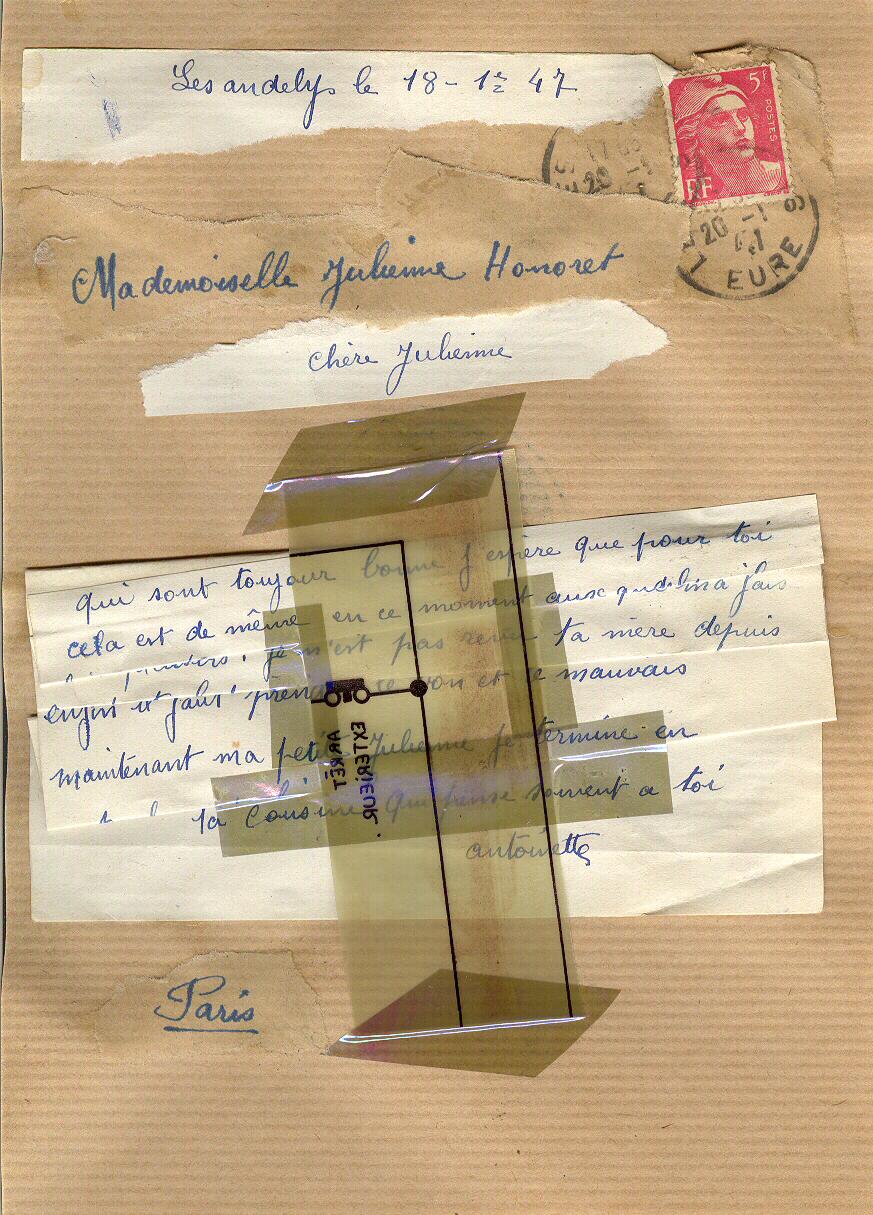 Les andelys le 18 - 1er 47
5F
POSTES
RF
20 -1
20 -1
EURE
Mademoiselle Julienne Honoret
chère Julienne
qui sont toujour bonne j espère que pour toi
cela est de même en ce moment aux
je n'est pas revu ta mère depuis
et le mauvais
maintenant ma petite Julienne je termine en
ta cousine qui pense souvent a toi
antoinette
ARRÊT
EXTERIEUR
Paris